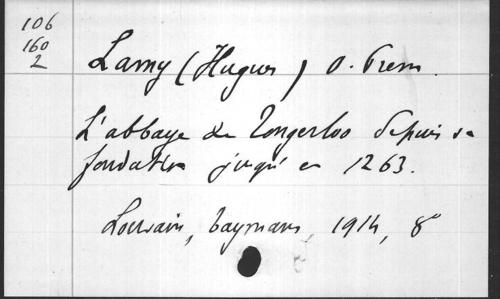 106
160
2
Lamy (Hugues) O. Prem.
L'abbaye de Tongerloo depuis sa
fondation jusqu'en 1263.
Louvain, Peymans, 1914, 8°